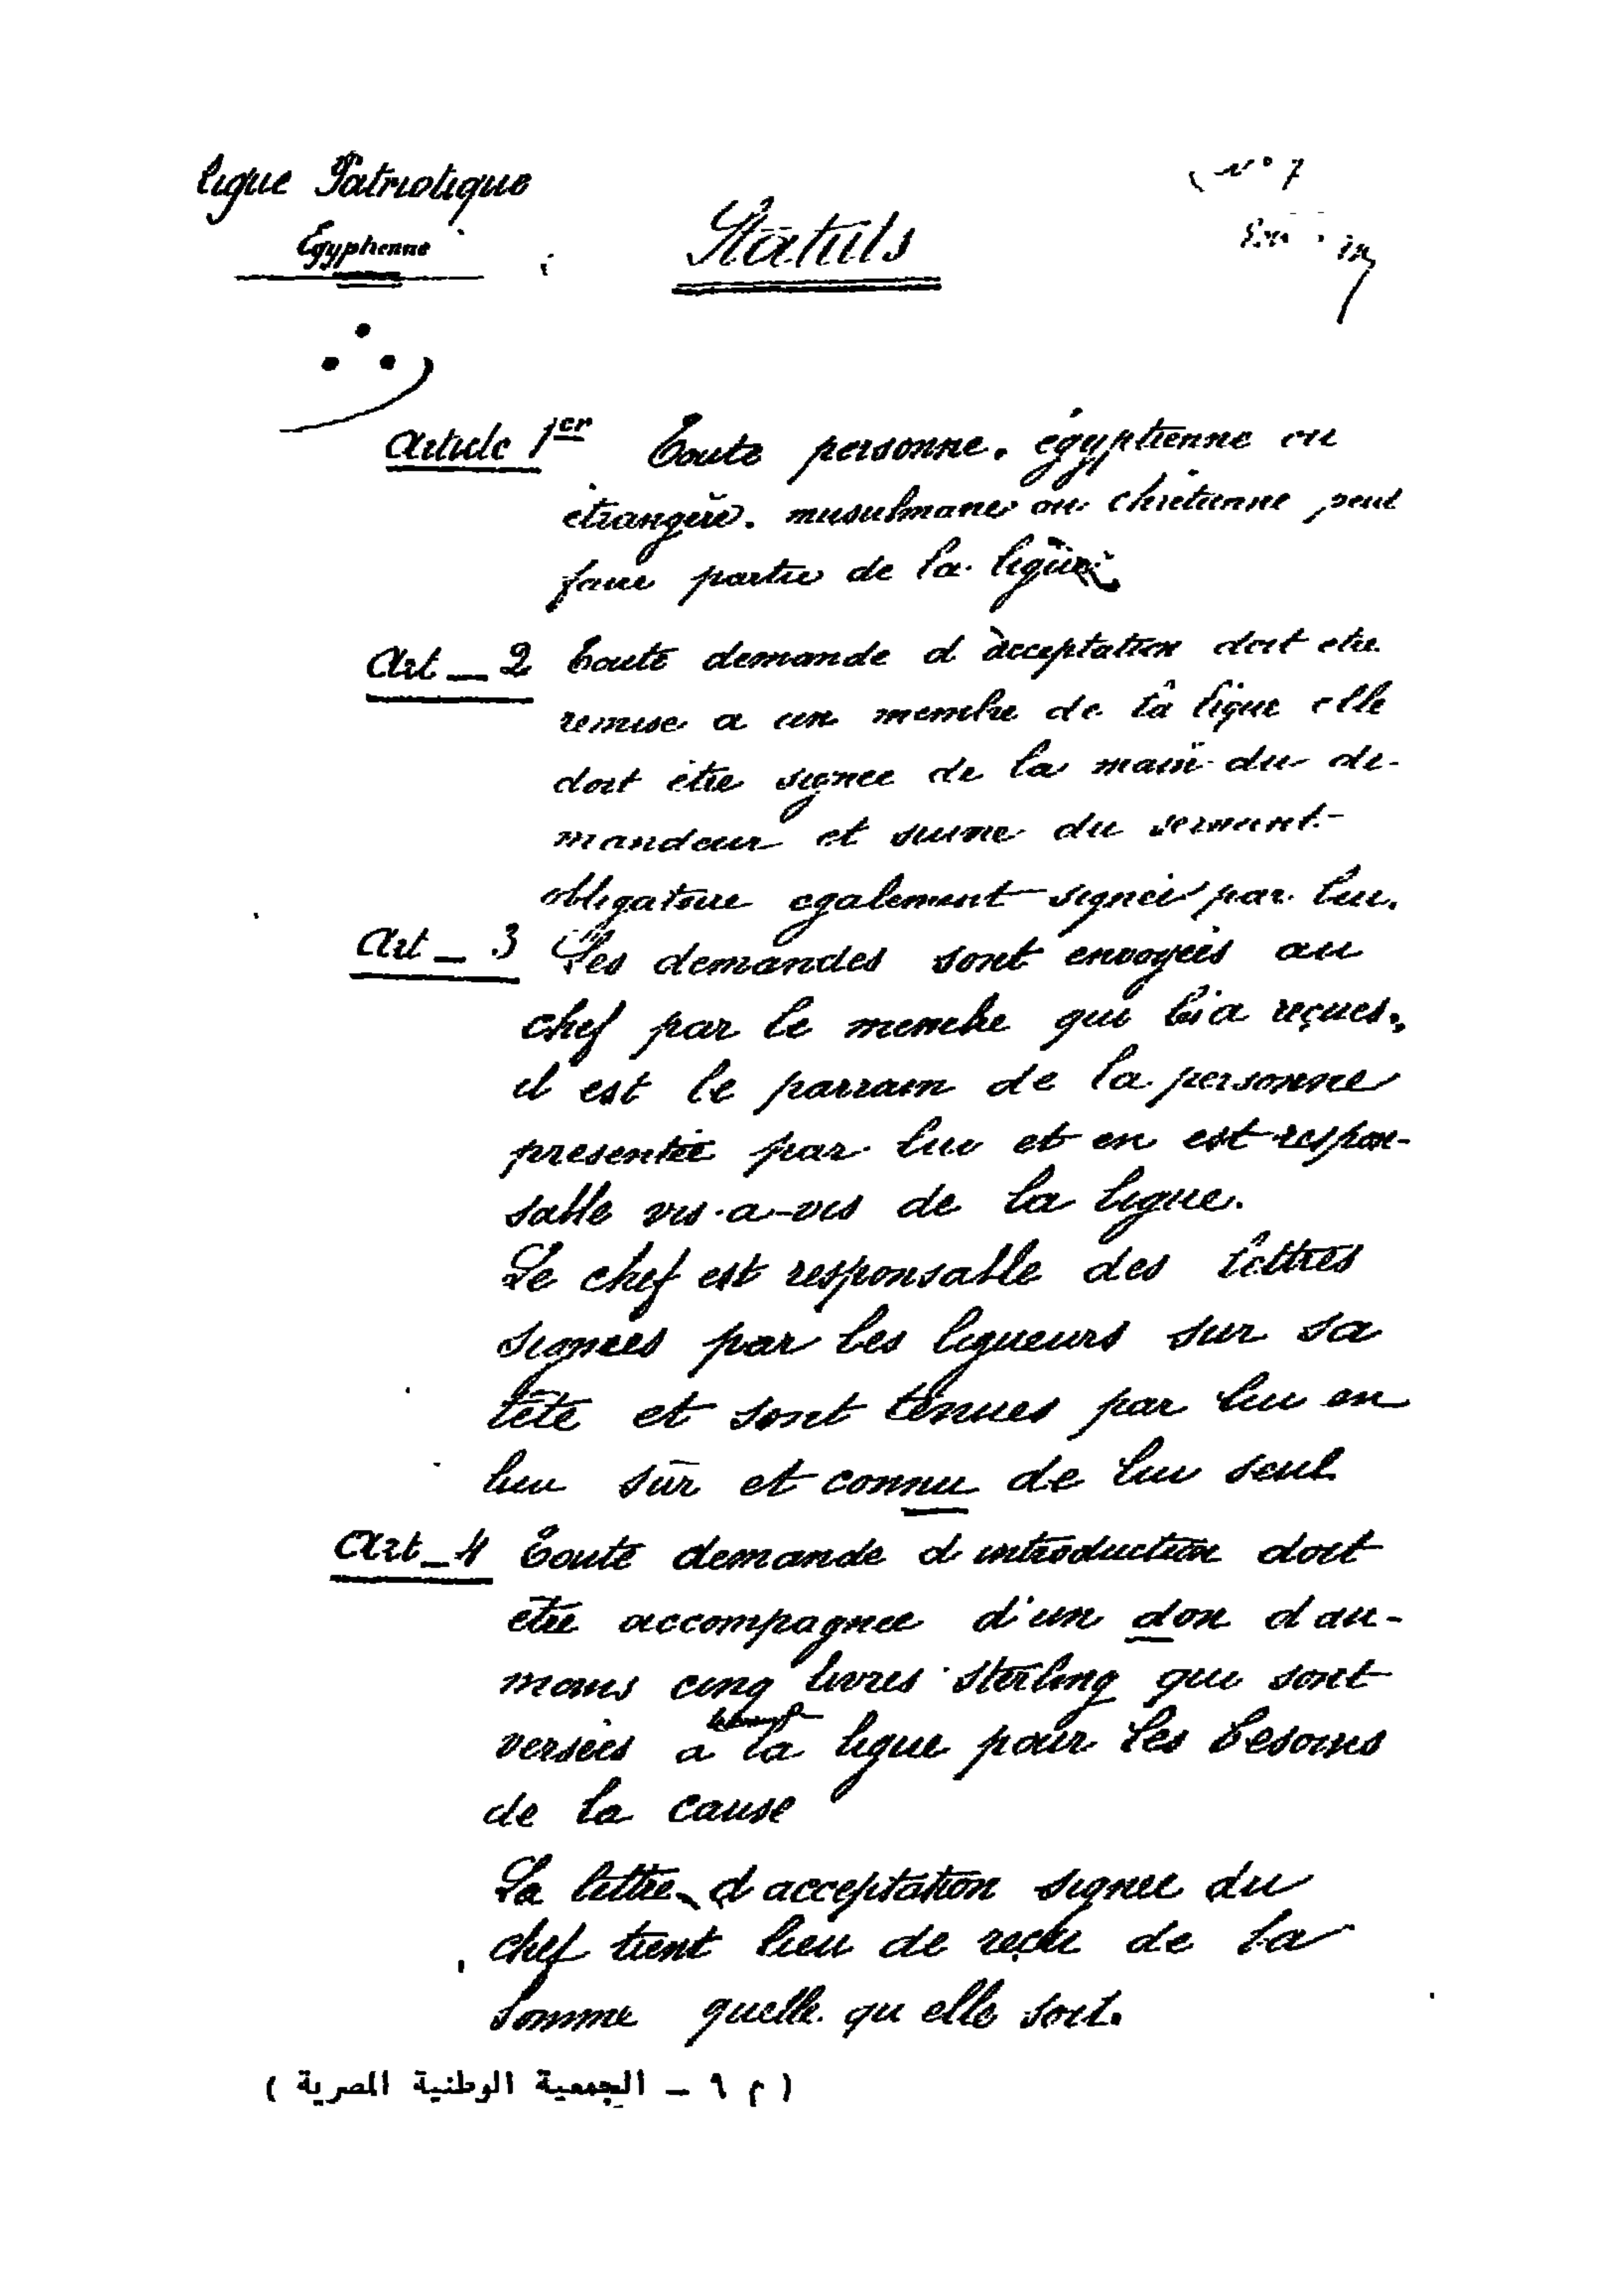 Ligue Patriotique
Egyptienne
Statuts
N° 7
Article 1er Toute personne. égyptienne ou
étrangère. musulmane ou chrétienne peut
faire partie de la ligue
Art — 2 Toute demande d'acceptation doit etre
remise a un membre de la ligue elle
doit être signee de la main du de-
mandeur et suivie du serment
obligatoire egalement signée par lui.
Art — 3 Les demandes sont envoyées au
chef par le membre qui les a reçues.
il est le parrain de la personne
presentée par lui et en est respon-
sable vis-a-vis de la ligue.
Le chef est responsable des lettres
signées par les ligueurs sur sa
tête et sont tenues par lui en
lieu sûr et connu de lui seul
Art — 4 Toute demande d'introduction doit
être accompagnee d'un don d'au-
moins cinq livres sterling qui sont
versées a la ligue pour les besoins
de la cause
La lettre d'acceptation signee du
chef tient lieu de reçu de la
somme quelle qu'elle soit.
( م ٩ – الجمعية الوطنية المصرية )